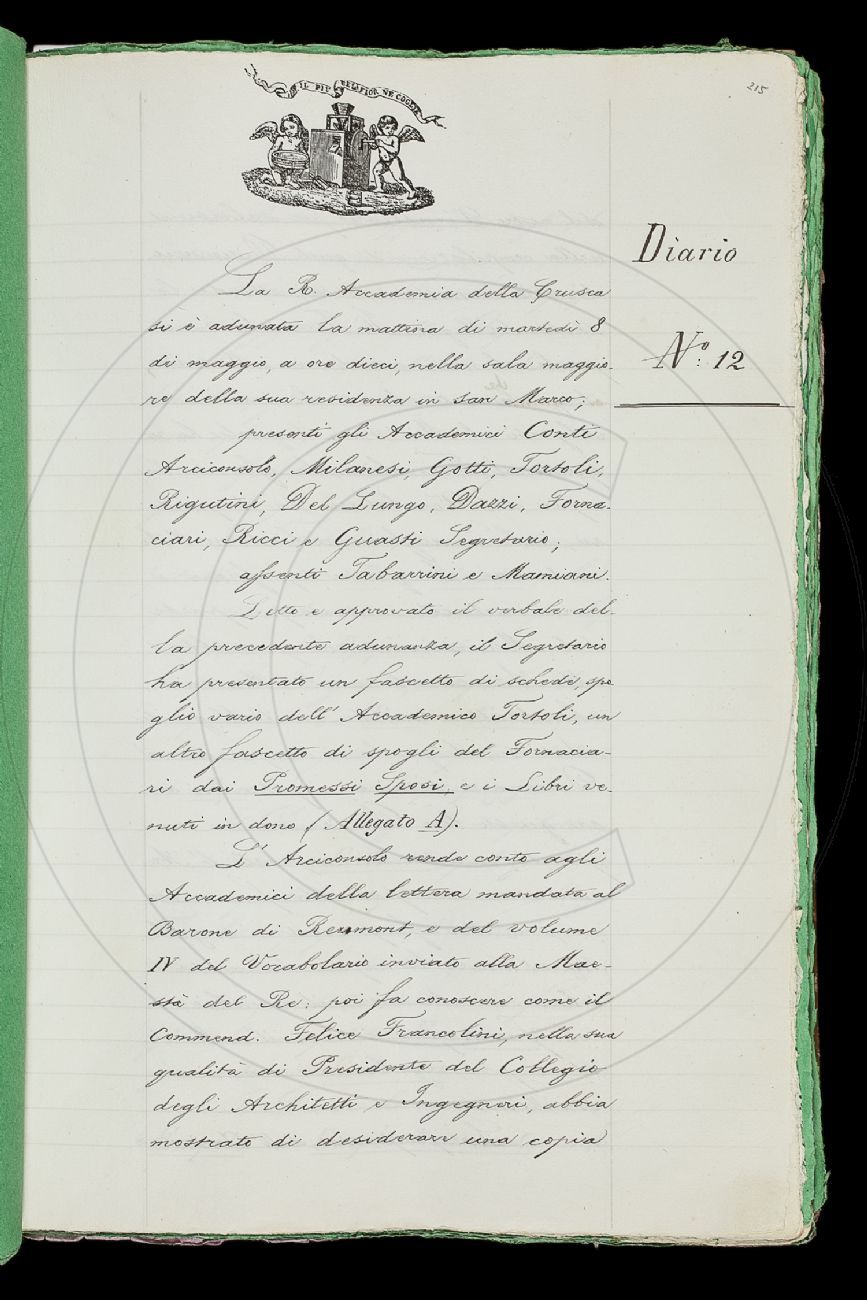 215
IL PIÙ BEL FIOR NE COGLIE
Diario
N.º 12
La R. Accademia della Crusca
si è adunata la mattina di martedì 8
di maggio, a ore dieci, nella sala maggio-
re della sua residenza in san Marco;
presenti gli Accademici Conti
Arciconsolo, Milanesi, Gotti, Tortoli,
Rigutini, Del Lungo, Dazzi, Forna-
ciari, Ricci e Guasti Segretario;
assenti Tabarrini e Mamiani.
Letto e approvato il verbale del-
la precedente adunanza, il Segretario
ha presentato un fascetto di schede, spo
glio vario dell' Accademico Tortoli, un
altro fascetto di spogli del Fornacia-
ri dai Promessi Sposi, e i Libri ve-
nuti in dono (Allegato A).
L' Arciconsolo rende conto agli
Accademici della lettera mandata al
Barone di Reumont, e del volume
IV del Vocabolario inviato alla Mae-
stà del Re: poi fa conoscere come il
Commend. Felice Francolini, nella sua
qualità di Presidente del Collegio
degli Architetti e Ingegneri, abbia
mostrato di desiderare una copia